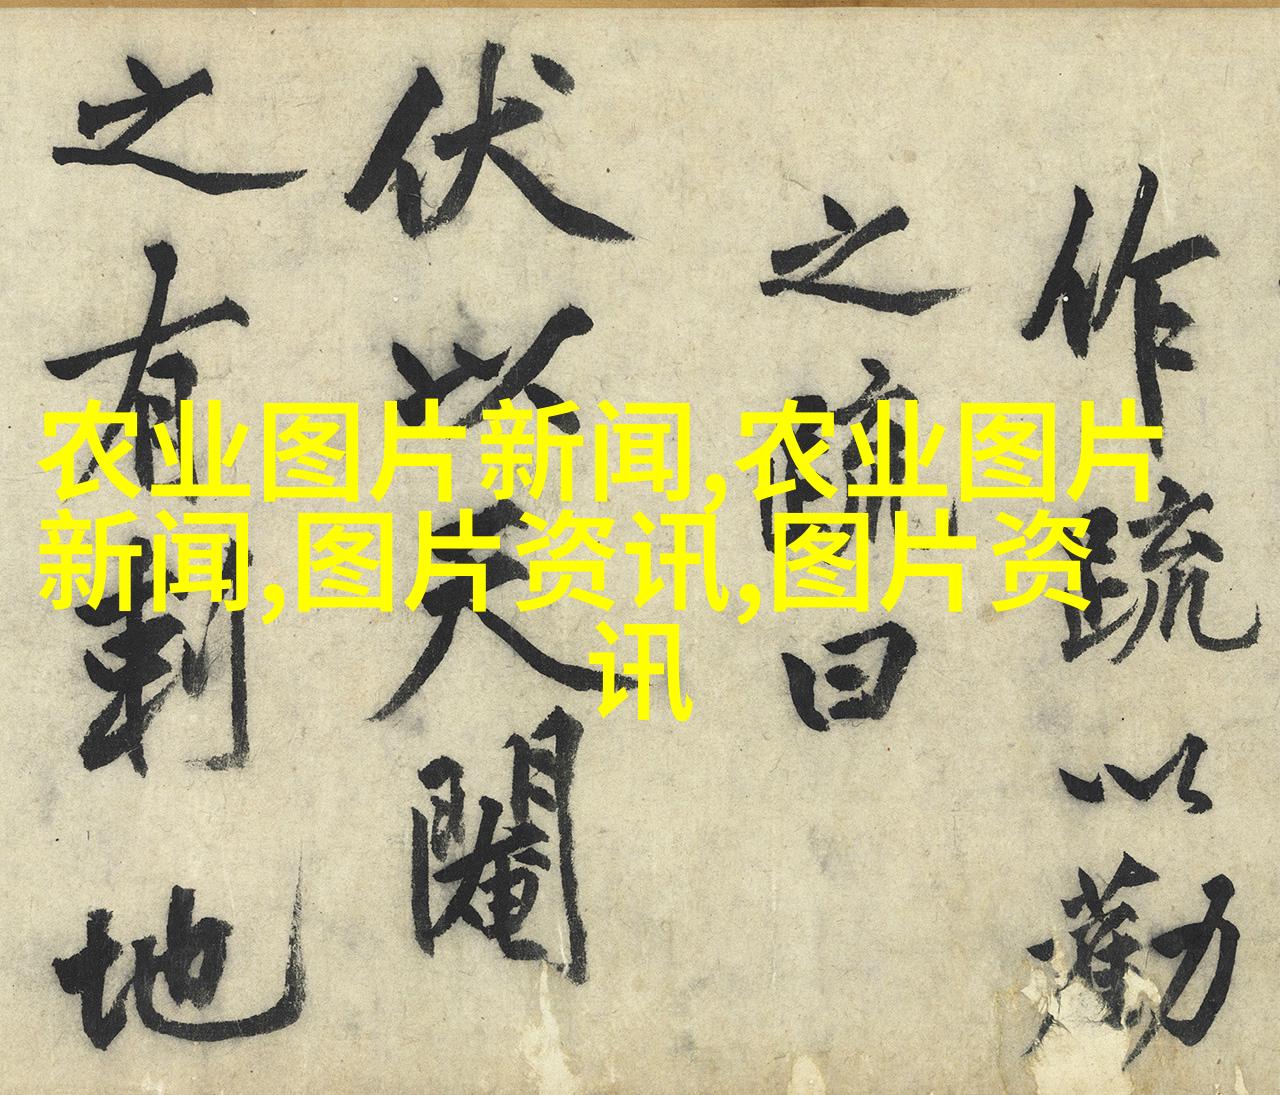 作疏以勸
之疏曰
伏以天閹
之有剩地
农业图片新闻,农业图片
新闻,图片资讯,图片资
讯